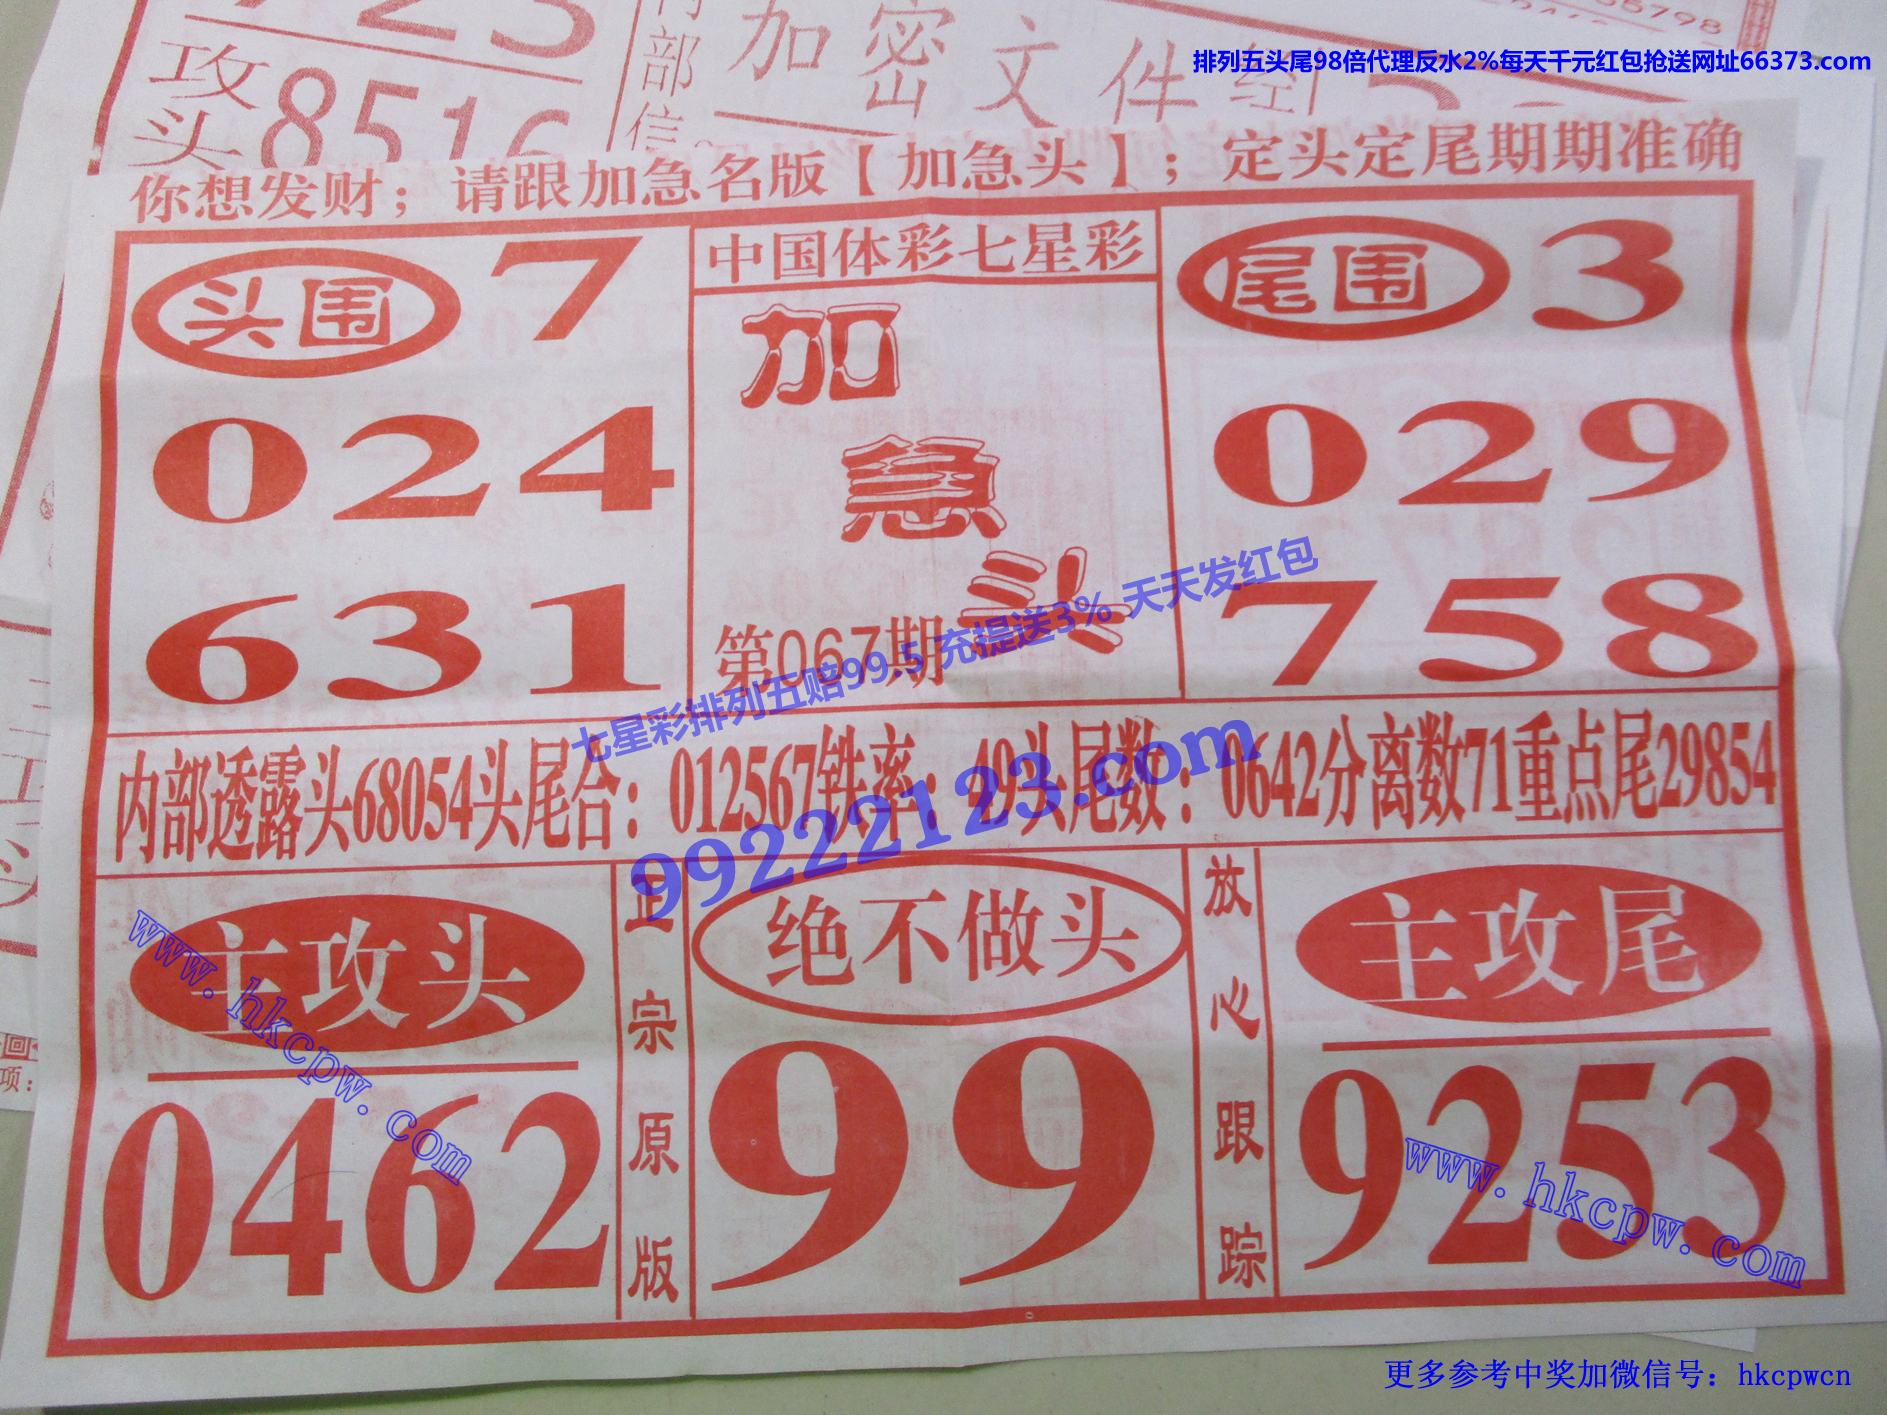 攻
头 8516
加密文件
排列五头尾98倍代理反水2%每天千元红包抢送网址66373.com
你想发财；请跟加急名版【加急头】；定头定尾期期准确
头围 7
024
631
中国体彩七星彩
加
急
头
第067期
尾围 3
029
758
七星彩排列五赔99.5 充提送3% 天天发红包
99222123.com
内部透露头68054头尾合：012567铁率：49头尾数：0642分离数71重点尾29854
主攻头
0462
正宗原版
绝不做头
99
放心跟踪
主攻尾
9253
www.hkcpw.com
www.hkcpw.com
更多参考中奖加微信号：hkcpwcn